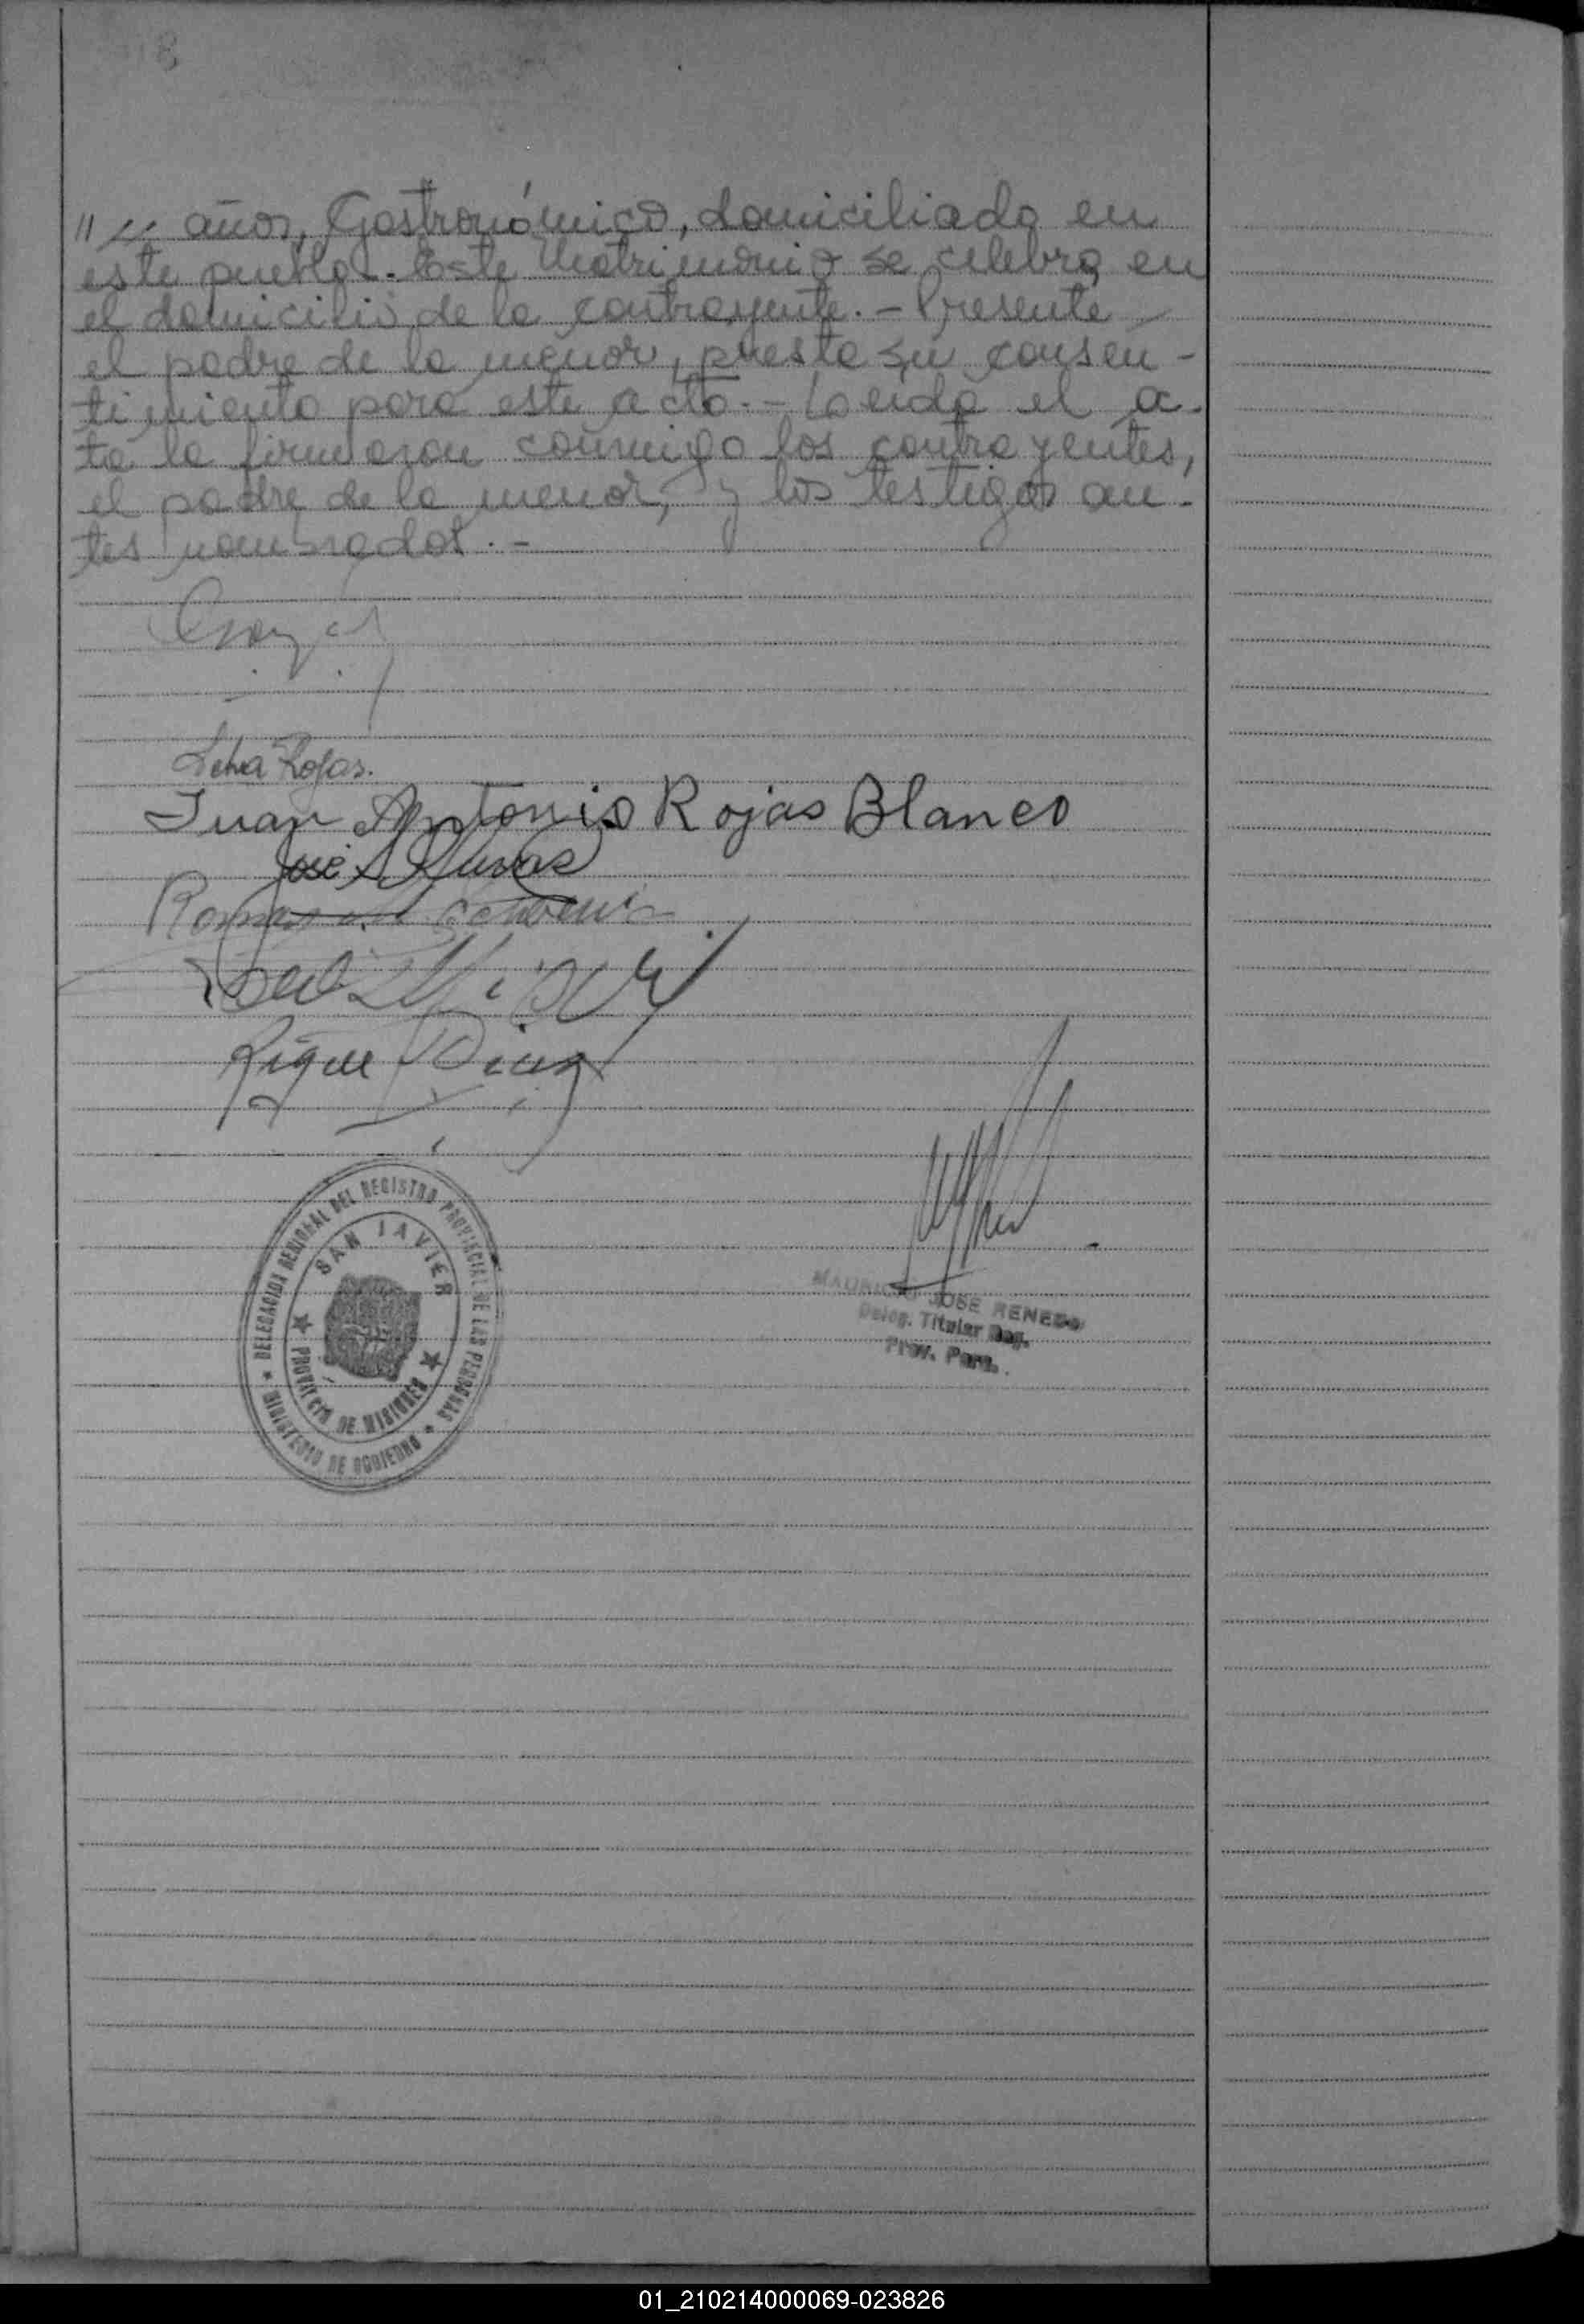 18
" " años, Gastronómico, domiciliado en
este pueblo. Este Matrimonio se celebra en
el domicilio de la contrayente. - Presente
el padre de la menor, presta su consen-
timiento para este acto. - Leída el ac-
ta la firmaron conmigo los contrayentes,
el padre de la menor, y los testigos an-
tes nombrados. -
Rojas.
Juan Antonio Rojas Blanco
José
Diaz
DELEGACION REGIONAL DEL REGISTRO PROVINCIAL DE LAS PERSONAS
SAN JAVIER
PROVINCIA DE MISIONES
MINISTERIO DE GOBIERNO
MAURICIO JOSE RENEDO
Deleg. Titular Reg.
Prov. Pers.
01_210214000069-023826